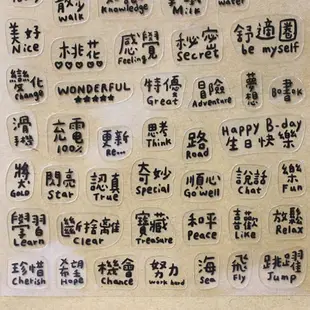 散步
Walk
Knowledge
Milk
water
美好
Nice
桃花
感覺
Feeling
秘密
Secret
舒適圈
be myself
變化
change
WONDERFUL
特優
Great
冒險
Adventure
夢想
書
Book
滑手機
充電
100%
更新
Re...
思考
Think
路
Road
Happy B-day
生日快樂
獎
GOLD
閃亮
Star
認真
True
奇妙
Special
順心
Go well
說話
Chat
樂
Fun
學習
Learn
斷捨離
Clear
寶藏
Treasure
和平
Peace
喜歡
Like
放鬆
Relax
珍惜
Cherish
希望
Hope
機會
Chance
努力
Work hard
海
Sea
飛
Fly
跳躍
Jump